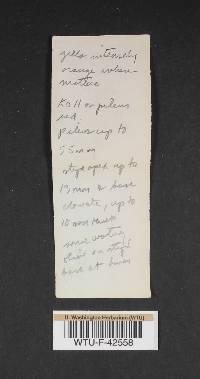 gills intensely
orange when
mature
KOH on pileus
red.
pileus up to
55 mm
stipe apex up to
13 mm & base
clavate, up to
18 mm thick
some
on stipe
base at times
U. Washington Herbarium (WTU)
WTU-F-42558